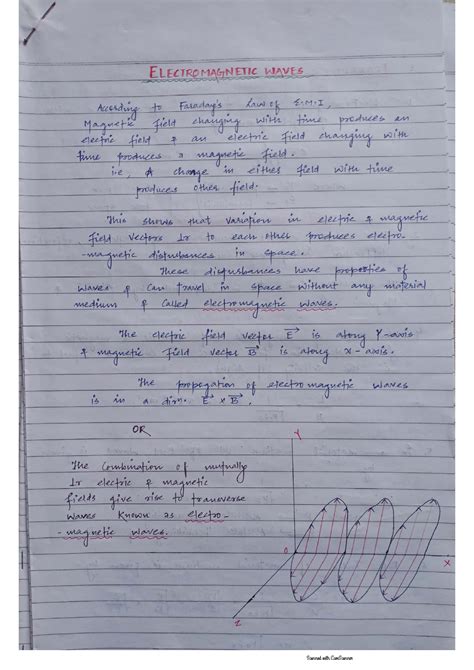 ELECTROMAGNETIC WAVES
According to Faraday's Law of E.M.I,
Magnetic field changing with time produces an
electric field & an electric field changing with
time produces a magnetic field.
i.e, A change in either field with time
produces other field.
This shows that variation in electric & magnetic
field vectors ⊥r to each other produces electro-
-magnetic disturbances in space.
These disturbances have properties of
waves & can travel in space without any material
medium & called electromagnetic waves.
The electric field vector E⃗ is along Y-axis
& magnetic field vector B⃗ is along X-axis.
The propegation of electromagnetic waves
is in a dirn. E⃗ x B⃗.
OR
The Combination of mutually
⊥r electric & magnetic
fields give rise to transverse
waves known as electro-
-magnetic waves.
Y
0
X
Z
Scanned with CamScanner